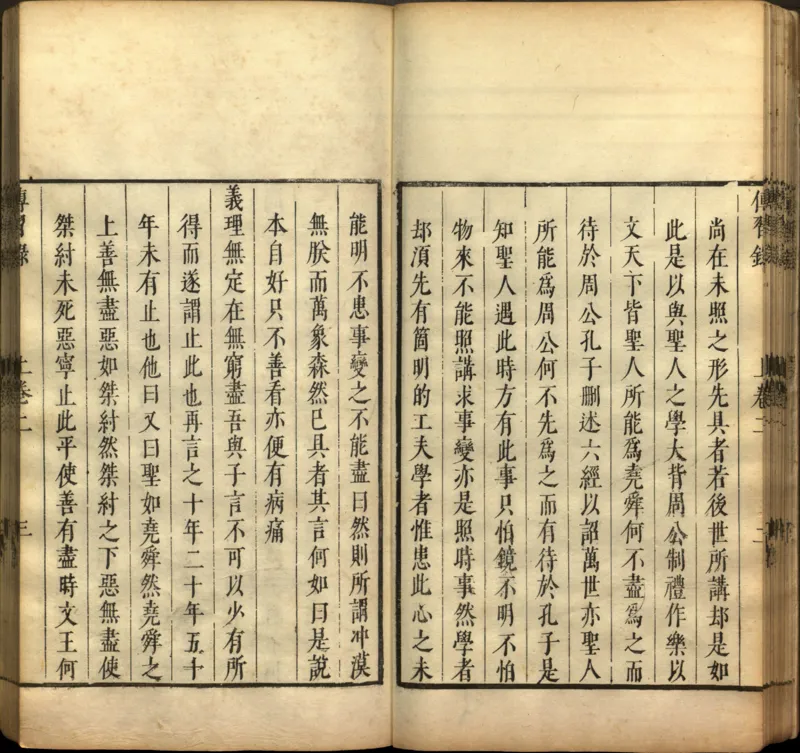 傳習錄
上卷二
二
尚在未照之形先具者若後世所講却是如
此是以與聖人之學大背周公制禮作樂以
文天下皆聖人所能為堯舜何不盡為之而
待於周公孔子刪述六經以詔萬世亦聖人
所能為周公何不先為之而有待於孔子是
知聖人遇此時方有此事只怕鏡不明不怕
物來不能照講求事變亦是照時事然學者
却湏先有箇明的工夫學者惟患此心之未
能明不患事變之不能盡曰然則所謂冲漠
無朕而萬象森然已具者其言何如曰是說
本自好只不善看亦便有病痛
義理無定在無窮盡吾與子言不可以少有所
得而遂謂止此也再言之十年二十年五十
年未有止也他日又曰聖如堯舜然堯舜之
上善無盡惡如桀紂然桀紂之下惡無盡使
桀紂未死惡寧止此乎使善有盡時文王何
傳習錄
上卷二
三